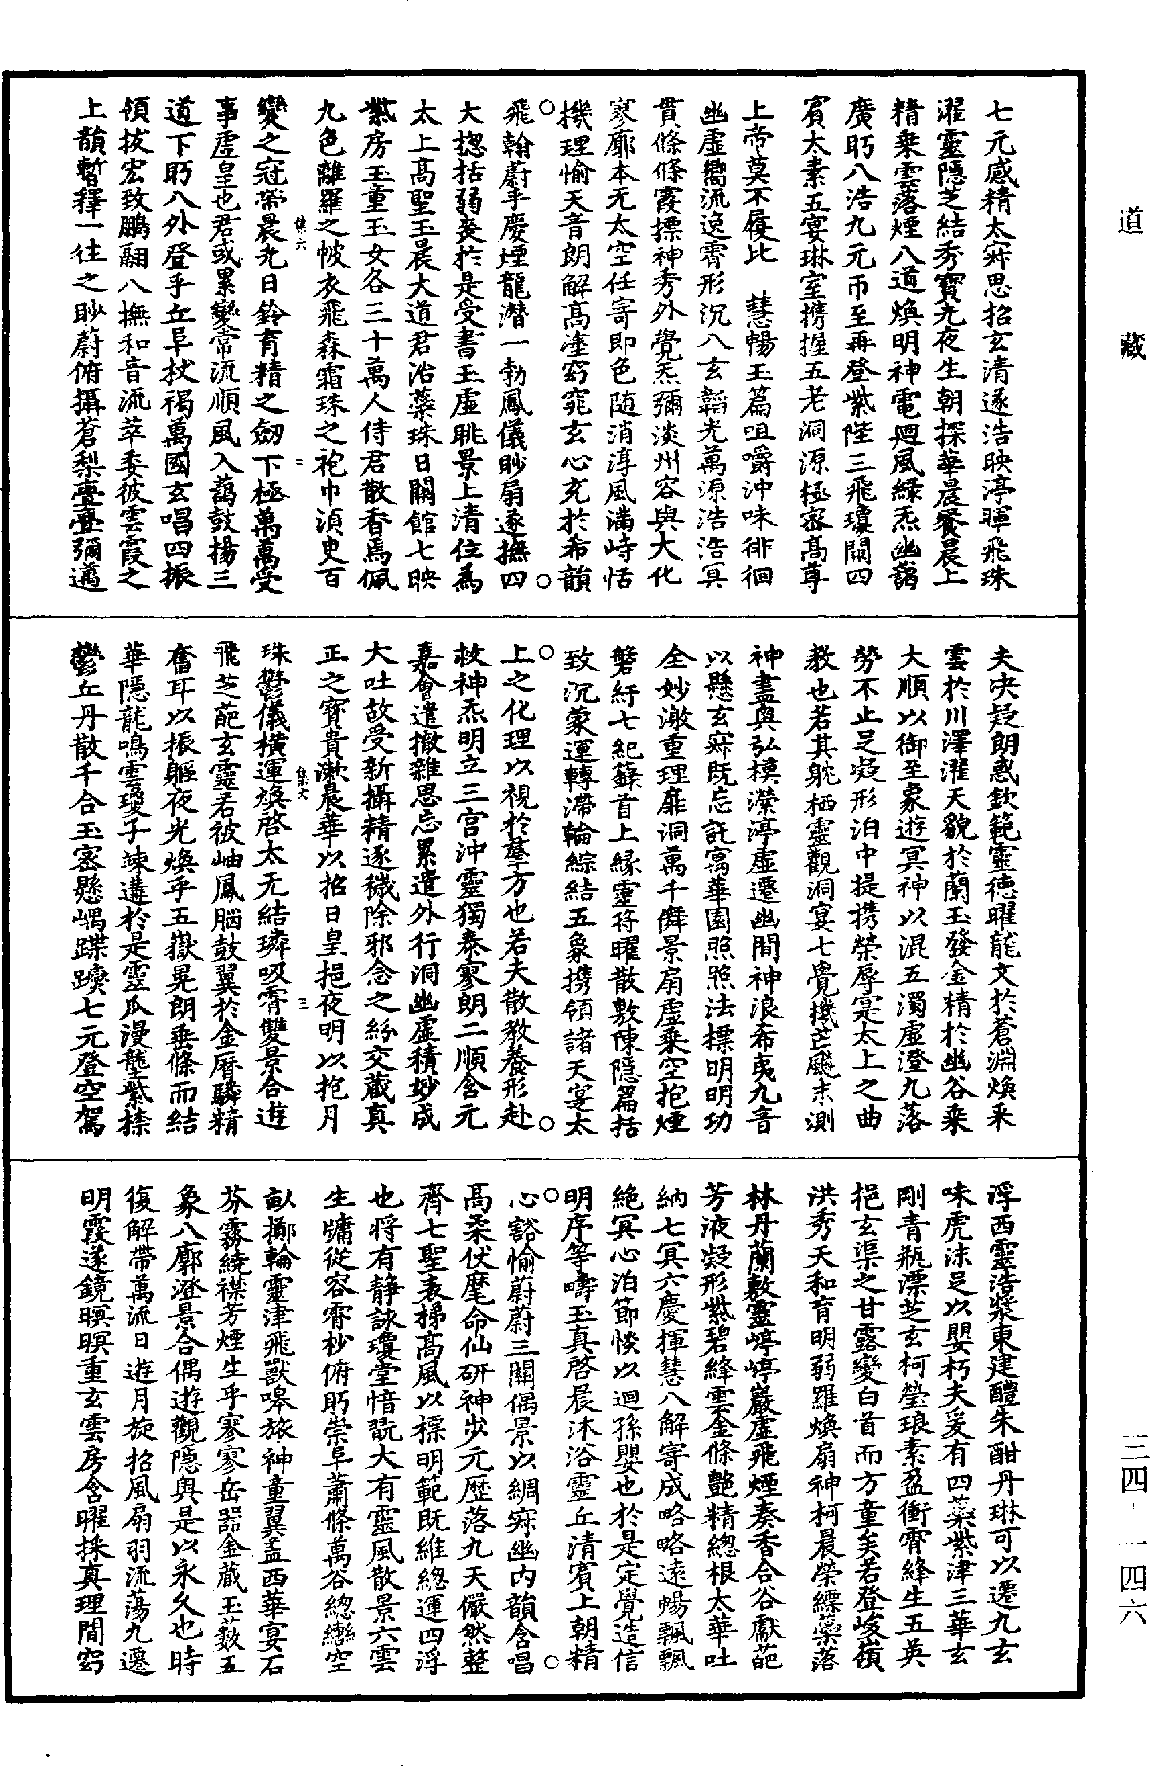 道藏
七元感精太寂思招玄清遂浩映渟暉飛珠
濯靈隱芝結秀寶光夜生朝探華晨餐晨上
精乗雲落煙八道煥明神電迴風緑炁幽藹
廣眄八浩九元帀至再登紫陛三飛瓊闕四
賔太素五宴琳室携握五老洞源極宻髙尊
上帝莫不屢比　慧暢玉篇咀嚼沖味徘徊
幽虚嚮流逸霄形沉八玄韜光萬源浩浩冥
貫條條霞摽神秀外覺炁彌淡州容與大化
寥廓本无太空任寄即色随消淳風滿峙恬
機理愉天音朗解髙塗窈窕玄心充於希韻
飛翰蔚乎慶煙龍潛一勃鳳儀眇扇遂撫四
大揔括弱喪於是受書玉虚眺景上清位爲
太上髙聖玉晨大道君治蘂珠日闕館七映
紫房玉童玉女各三十萬人侍君散香焉佩
九色離羅之帔衣飛森霜珠之袍巾須臾百
變之冠帶晨光日鈴育精之劒下極萬萬受
事虚皇也君或累變常流順風入藹鼓揚三
道下眄八外登乎丘阜杖褐萬國玄唱四振
領拔宏致鵬翮八撫和音流萃委彼雲霞之
上韻暫釋一往之眇蔚俯攝蒼梨亹亹彌邁
集六
二
夫决疑朗惑欽範靈德曜龍文於蒼淵煥采
雲於川澤濯天貌於蘭玉發金精於幽谷乗
大順以御至象遊冥神以混五濁虚澄九落
勞不止足凝形泊中提携榮辱寔太上之曲
教也若其躭栖靈觀洞宴七覺機芒飈未測
神盡與弘模濚渟虚遷幽間神浪希夷九音
以懸玄寂既忘託寓華園照照法摽明明功
全妙澈重理扉洞萬千儛景扇虚乗空抱煙
磐紆七紀蘓首上縁靈符曜散敷陳隱篇括
致沉蒙運轉滯輪綜結五象携領諸天宴太
上之化理以視於羣方也若夫散教養形赴
救神炁明立三宫沖靈獨泰寥朗二順含元
嘉會遣撤雜思忘累遣外行洞幽虚積妙成
大吐故受新攝精逐穢除邪念之紛交藏真
正之寳貴漱晨華以招日皇挹夜明以抱月
珠鬱儀横運煥啓太无結璘吸霄雙景合遊
飛芝葩玄靈若被岫鳳腦鼓翼於金曆驎精
奮耳以振軀夜光煥乎五嶽晃朗垂條而結
華隱龍鳴雲璈子竦遘於是靈瓜漫壟紫㯶
鬱丘丹散千合玉宻懸嵎蹀躞七元登空駕
集六
三
浮西靈浩漿東建醴朱酣丹琳可以遷九玄
味虎沫足以嬰朽夫爰有四蘂紫津三華玄
剛青瓶漂芝玄柯瑩琅素盈衝霄絳生五英
挹玄渠之甘露變白首而方童矣若登峻嶺
洪秀天和育明弱羅煥扇神柯晨榮縹蘂落
林丹蘭敷靈崢崢巖虚飛煙奏香合谷獻葩
芳液凝形紫碧絳雲金條艶精總根太華吐
納七冥六慶揮慧八解寄成略略遠暢飄飄
絶冥心泊節惔以迴孫嬰也於是定覺造信
明序等疇玉真啓晨沐浴靈丘清賔上朝精
心豁愉蔚蔚三關偶景以綢寂幽内韻含唱
髙柔伏麾命仙研神歩元歴落九天儼然整
齊七聖表掦髙風以標明範既維總運四浮
也将有静詠瓊堂愔翫大有靈風散景六雲
生牗從容霄杪俯眄崇阜蕭條萬谷總轡空
畝擲輪靈津飛獸嘷旅神童翼盖西華宴石
芬霧繞襟芳煙生乎寥寥岳嵒金蔵玉蔱五
象八廓澄景合偶遊觀隱與是以永久也時
復解帶萬流日遊月旋招風扇羽流蕩九遷
明霞遂鏡暝暝重玄雲房含曜採真理間窈
三四-一四六